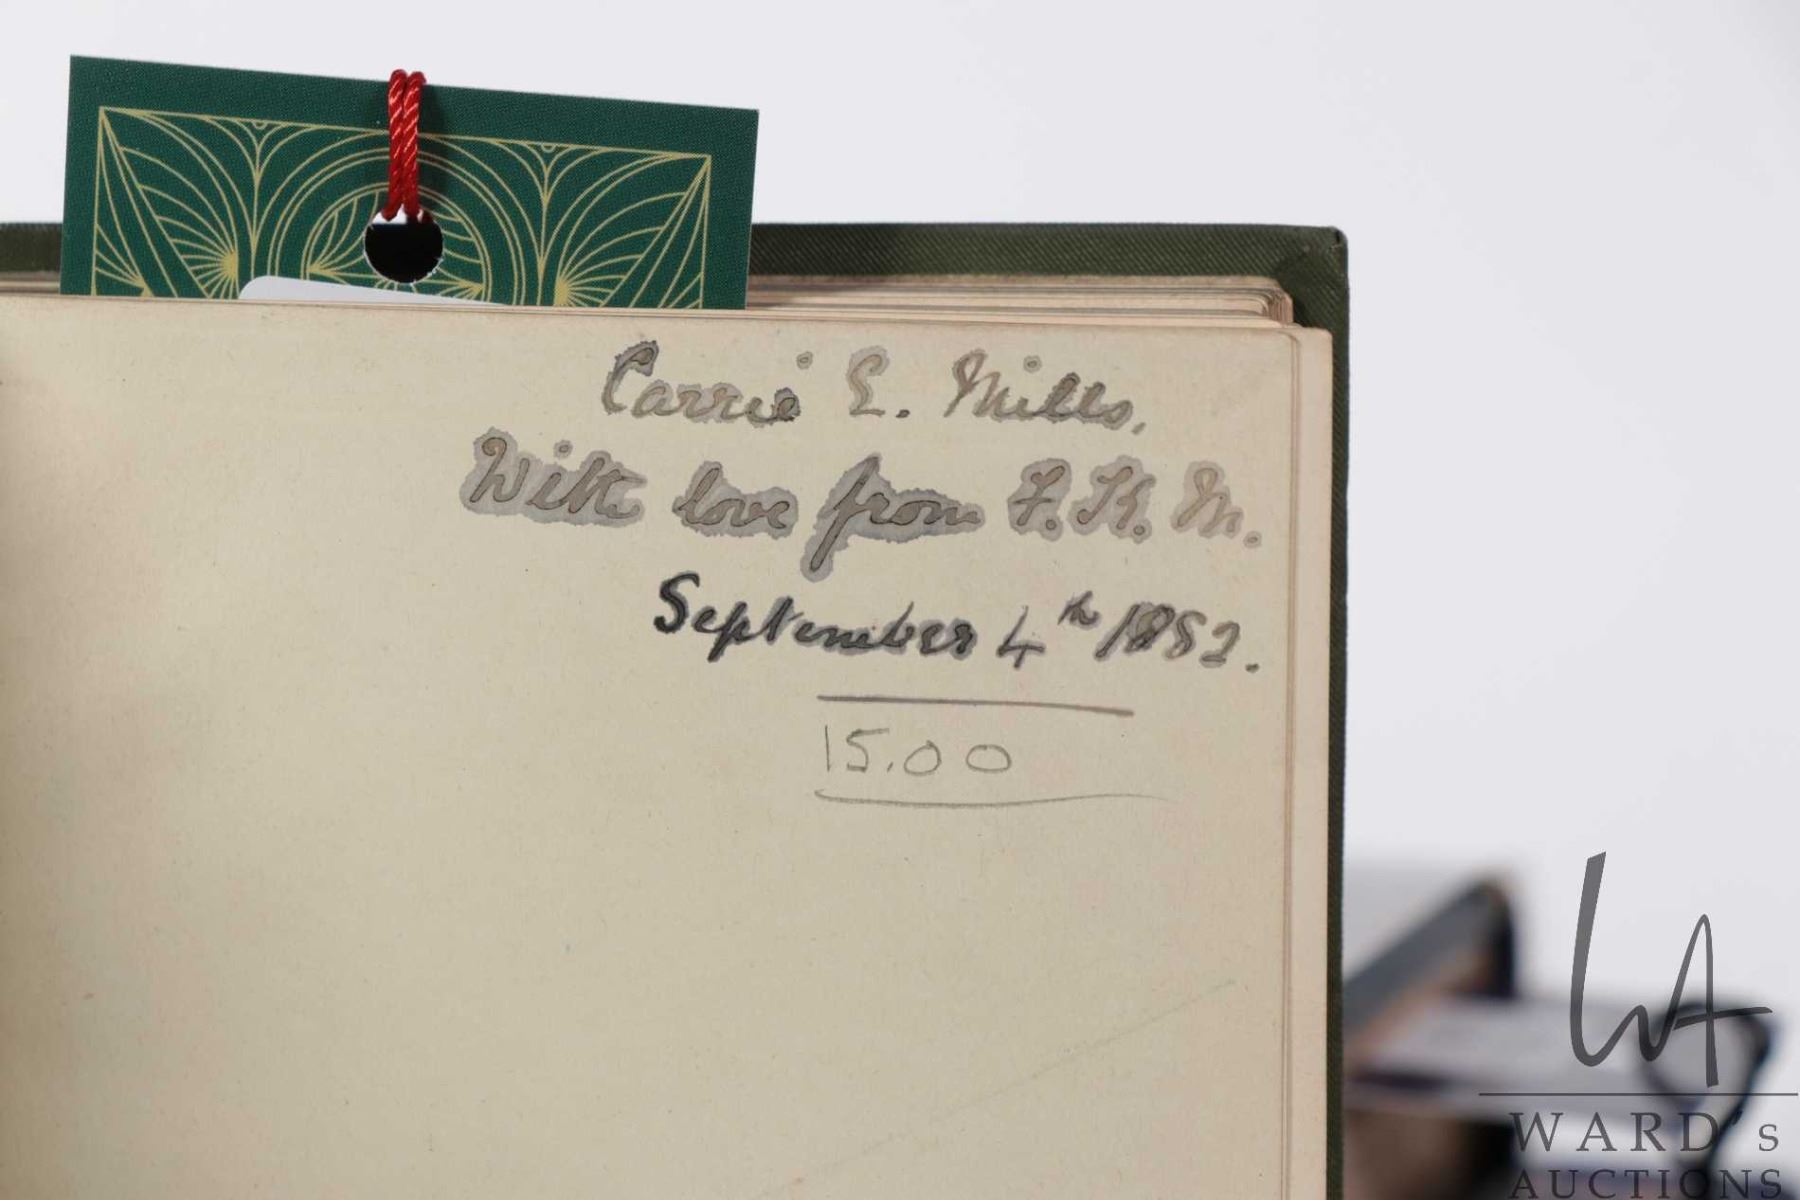 Carrie E. Mills,
With love from F. K. M.
September 4th 1882.
15.00
WARD's
AUCTIONS